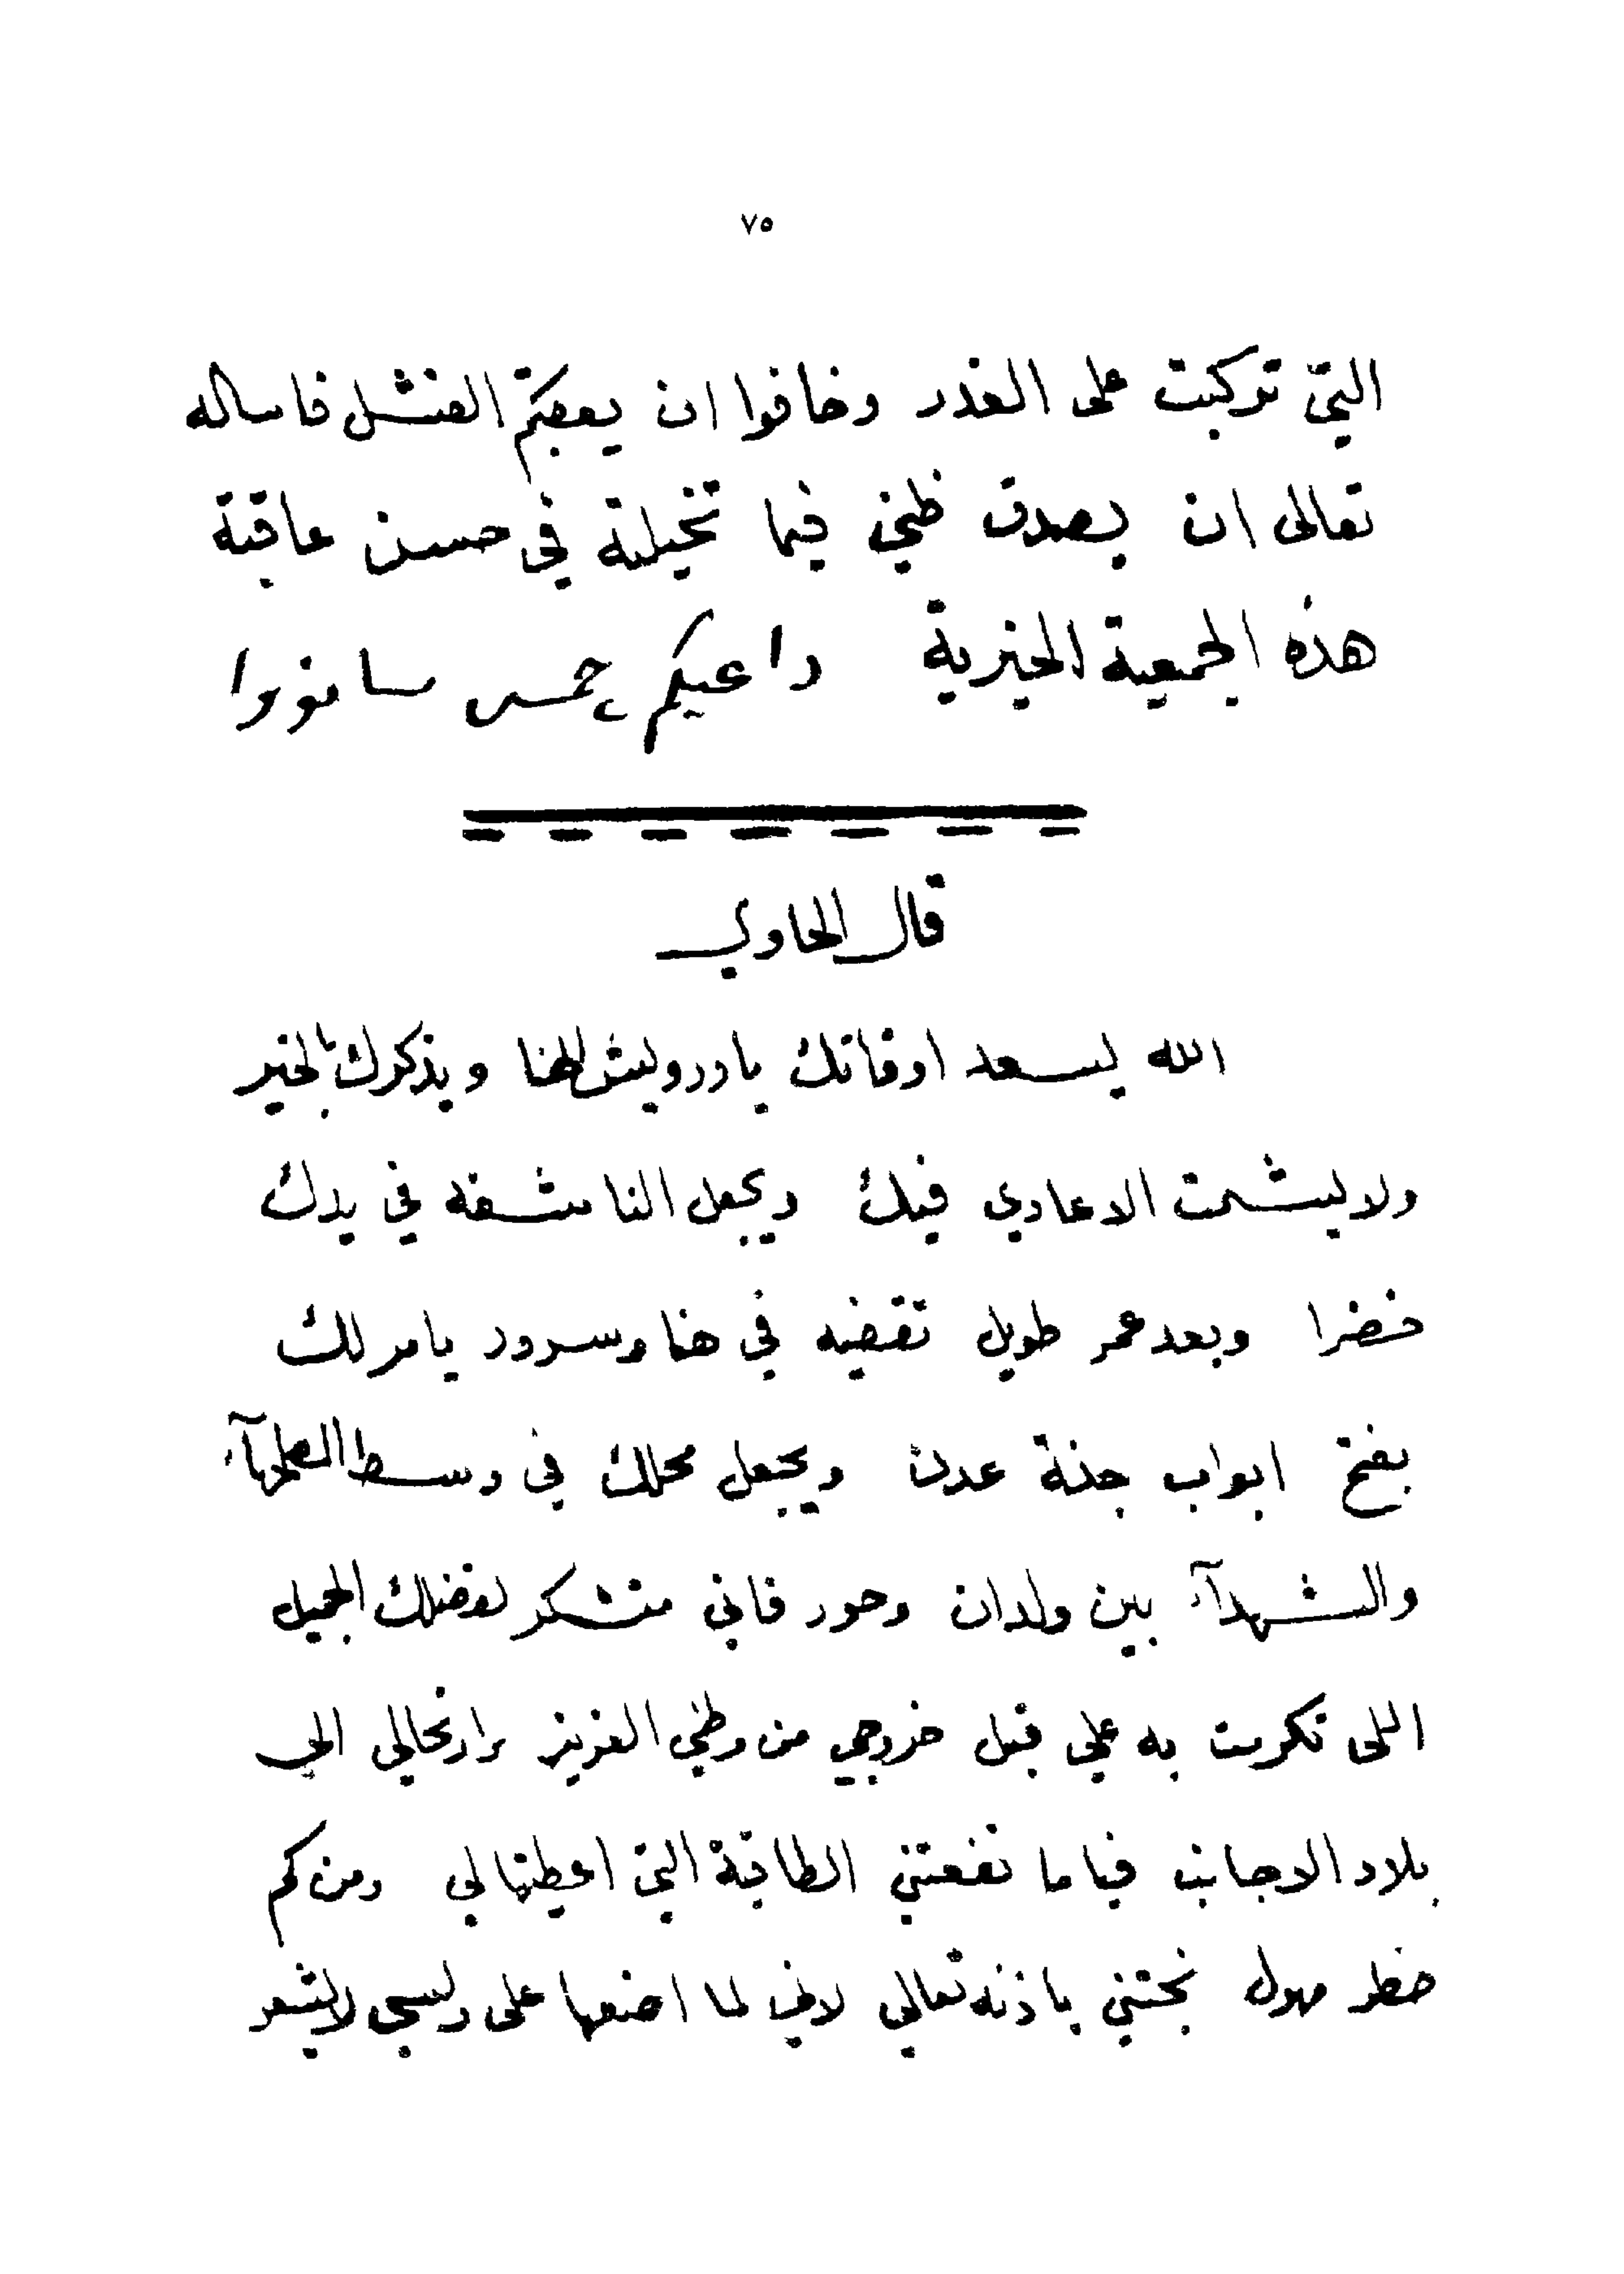 ٧٥
التي تركبت على الغدر وخافوا ان يعقبكم الفشل فاساله
تعالى ان يصدق ظني فيما تخيلته في حسن عاقبة
هذه الجمعية الخيرية داعيكم جمس سانووا
قال الحاوي
الله يسعد اوقاتك يا درويش الهنا ويذكرك بالخير
ولا يشمت الاعادي فيك ويجعل الناشفه في يدك
خضرا وبعد عمر طويل تقضيه في هنا وسرور يامر لك
بفتح ابواب جنة عدن ويجعل محلك في وسط العلمآء
والشهدآء بين ولدان وحور فاني متشكر لفضلك الجميل
اللى تكرمت به علي قبل خروجي من وطني العزيز وارتحالي الى
بلاد الاجانب فياما نفعتني الطاقية التي اعطيتها لي ومن كم
خطر مهول نجتني باذنه تعالي لاني لما اضعها على راسي لا يشعر